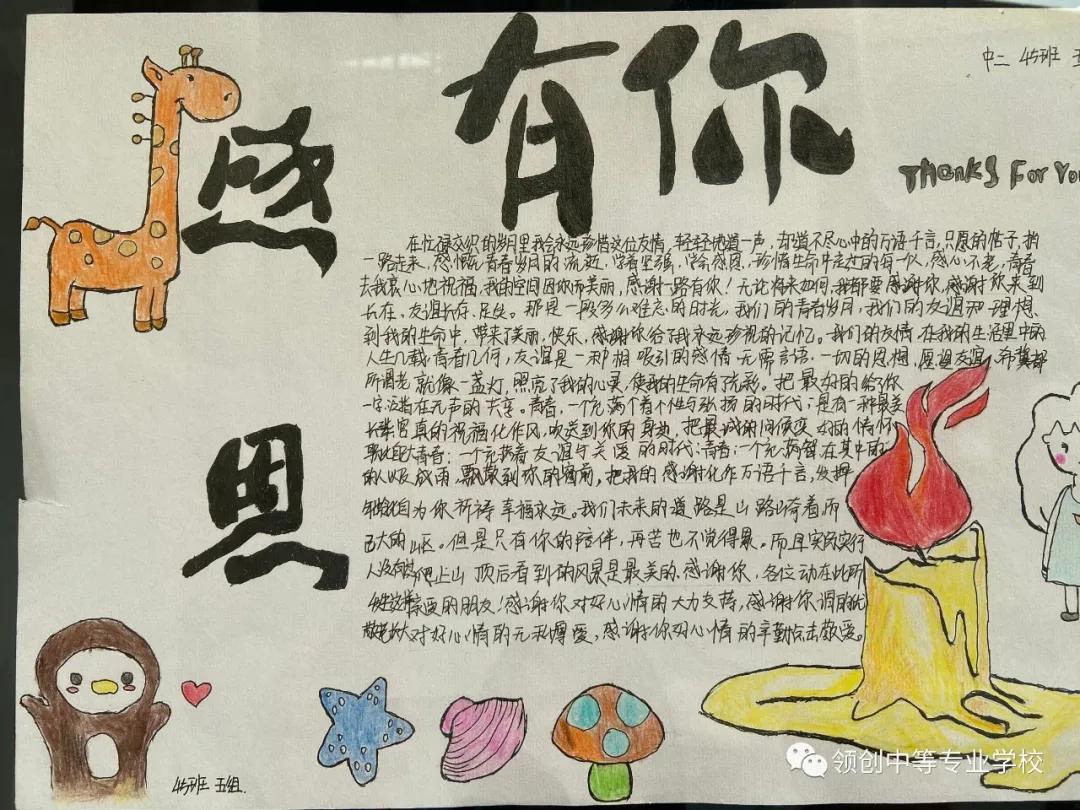 感恩
有你
中二 45班 五
Thanks For You
在忙碌交织的岁月里我会永远珍惜这位友情,轻轻地道一声,却道不尽心中的万语千言,只愿的帖子,拍
一路走来,感慨青春岁月的流逝,学着坚强,学会感恩,珍惜生命中走过的每一人,感心不老,青春
去我衷心地祝福,我的空间因你而美丽,感谢一路有你!无论将来如何,我都要感谢你,感谢你来到
长在、友谊长存、足矣。那是一段多么难忘的时光,我们的青春岁月,我们的友谊和理想、
到我的生命中,带来了美丽、快乐,感谢你给了我永远珍视的记忆。我们的友情,在我的生活里中的
人生几载,青春几何,友谊是一种相吸引的感情,无需言语,一切的思想,愿望友谊,希冀都
就像一盏灯,照亮了我的心灵,使我的生命有了光彩。把最好的给了你
在无声的共享。青春,一个充满个着个性与张扬的时代;是有一种最美
真的祝福化作风,吹送到你的身边,把最诚的问候变
青春;一个充满着友谊与关爱的时代;青春;一个充满智在其中的
成雨、飘落到你的窗前,把我的感谢化作万语千言,发挥
为你祈祷幸福永远。我们未来的道路是山路崎着而
大的山区。但是只有你的陪伴,再苦也不觉得累。而且实际实行
爬上山顶后看到的风景是最美的。感谢你,各位动在此所
要的朋友!感谢你对好心情的大力支持,感谢你
对好心情的无私厚爱,感谢你对心情的辛勤点击敬爱。
45班 五组
领创中等专业学校